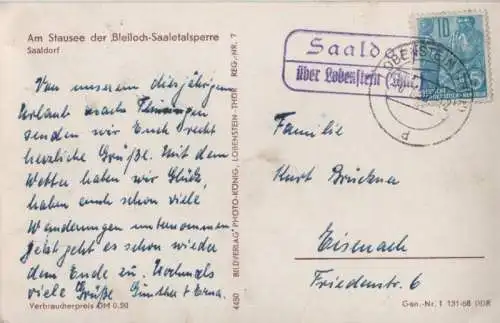 Am Stausee der Bleiloch-Saaletalsperre
Saaldorf
Von unserem diesjährigen
Urlaub nach Thüringen
senden wir Euch recht
herzliche Grüße. Mit dem
Wetter haben wir Glück,
haben auch schon viele
Wanderungen unternommen
Jetzt geht es schon wieder
dem Ende zu. Nochmals
viele Grüße Günther + Erna.
Verbraucherpreis DM 0,20
4450 BILDVERLAG PHOTO-KÖNIG, LOBENSTEIN-THÜR REG.-NR. 7
Saaldo
über Lobenstein (Thür.)
LOBENSTEIN
d
10
Familie
Kurt Brückner
Eisenach
Friedenstr. 6
Gen.-Nr. I 131-58 DDR